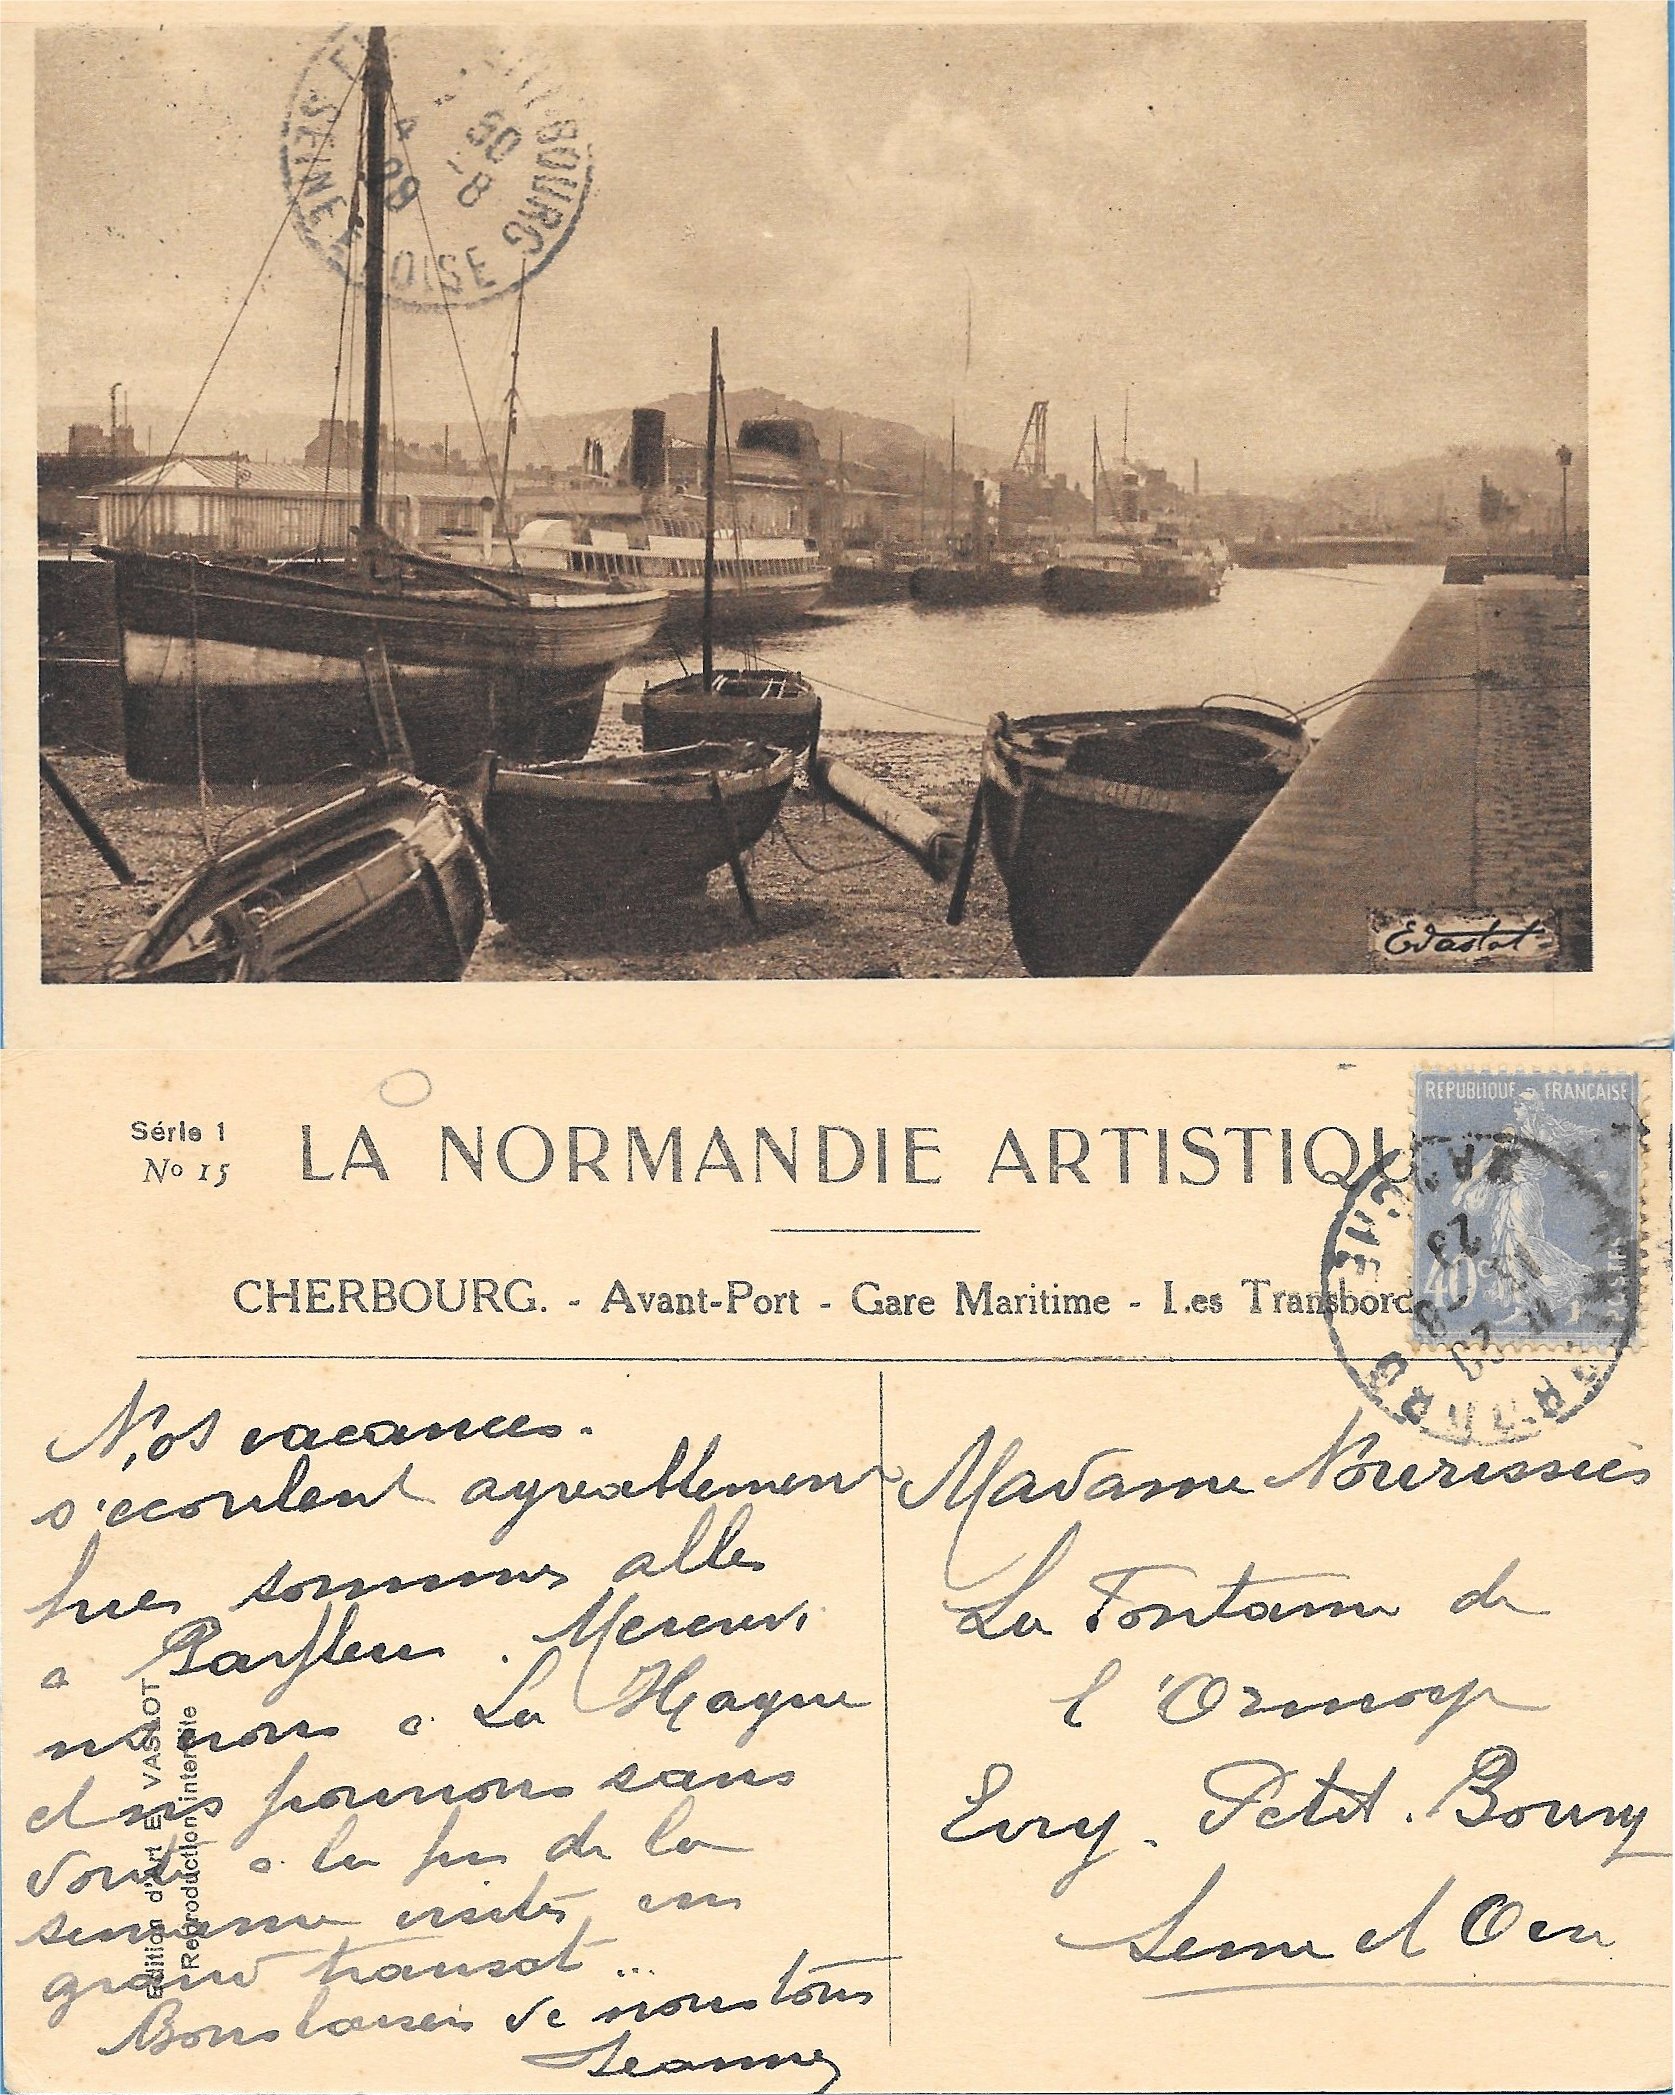 SEINE ET OISE
BOURG
4
50
-8
29
EVaslot
Série 1
No 15
LA NORMANDIE ARTISTIQU
CHERBOURG. - Avant-Port - Gare Maritime - Les Transbord
REPUBLIQUE FRANÇAISE
40c
Nos vacances
s'ecoulent agreablement
hier sommes allés
a Barfleur. Mercredi
ns irons a La Hague
et ns pourrons sans
doute a la fin de la
semaine visiter un
grand transat...
Bons baisers de nous tous
Jeanne
Edition d'Art E. VASLOT
Reproduction interdite
Madame Nourissier
La Fontaine de
l'Ormoye
Evry. Petit. Bourg
Seine et Oise